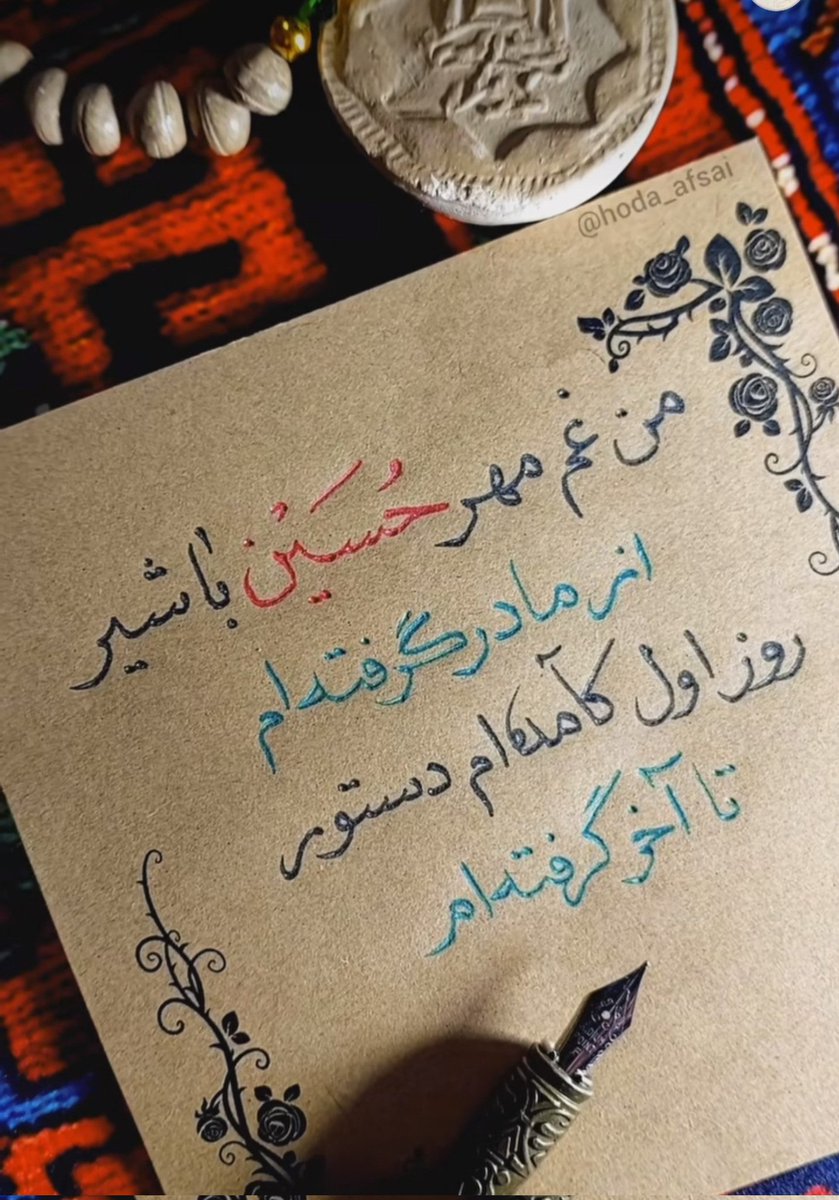 @hoda_afsai
من غم مهر حُسَیْن با شیر
از مادر گرفته‌ام
روز اول کآمده‌ام دستور
تا آخر گرفته‌ام